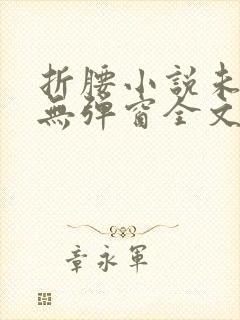 折腰小説未
無彈窗全文
章永軍